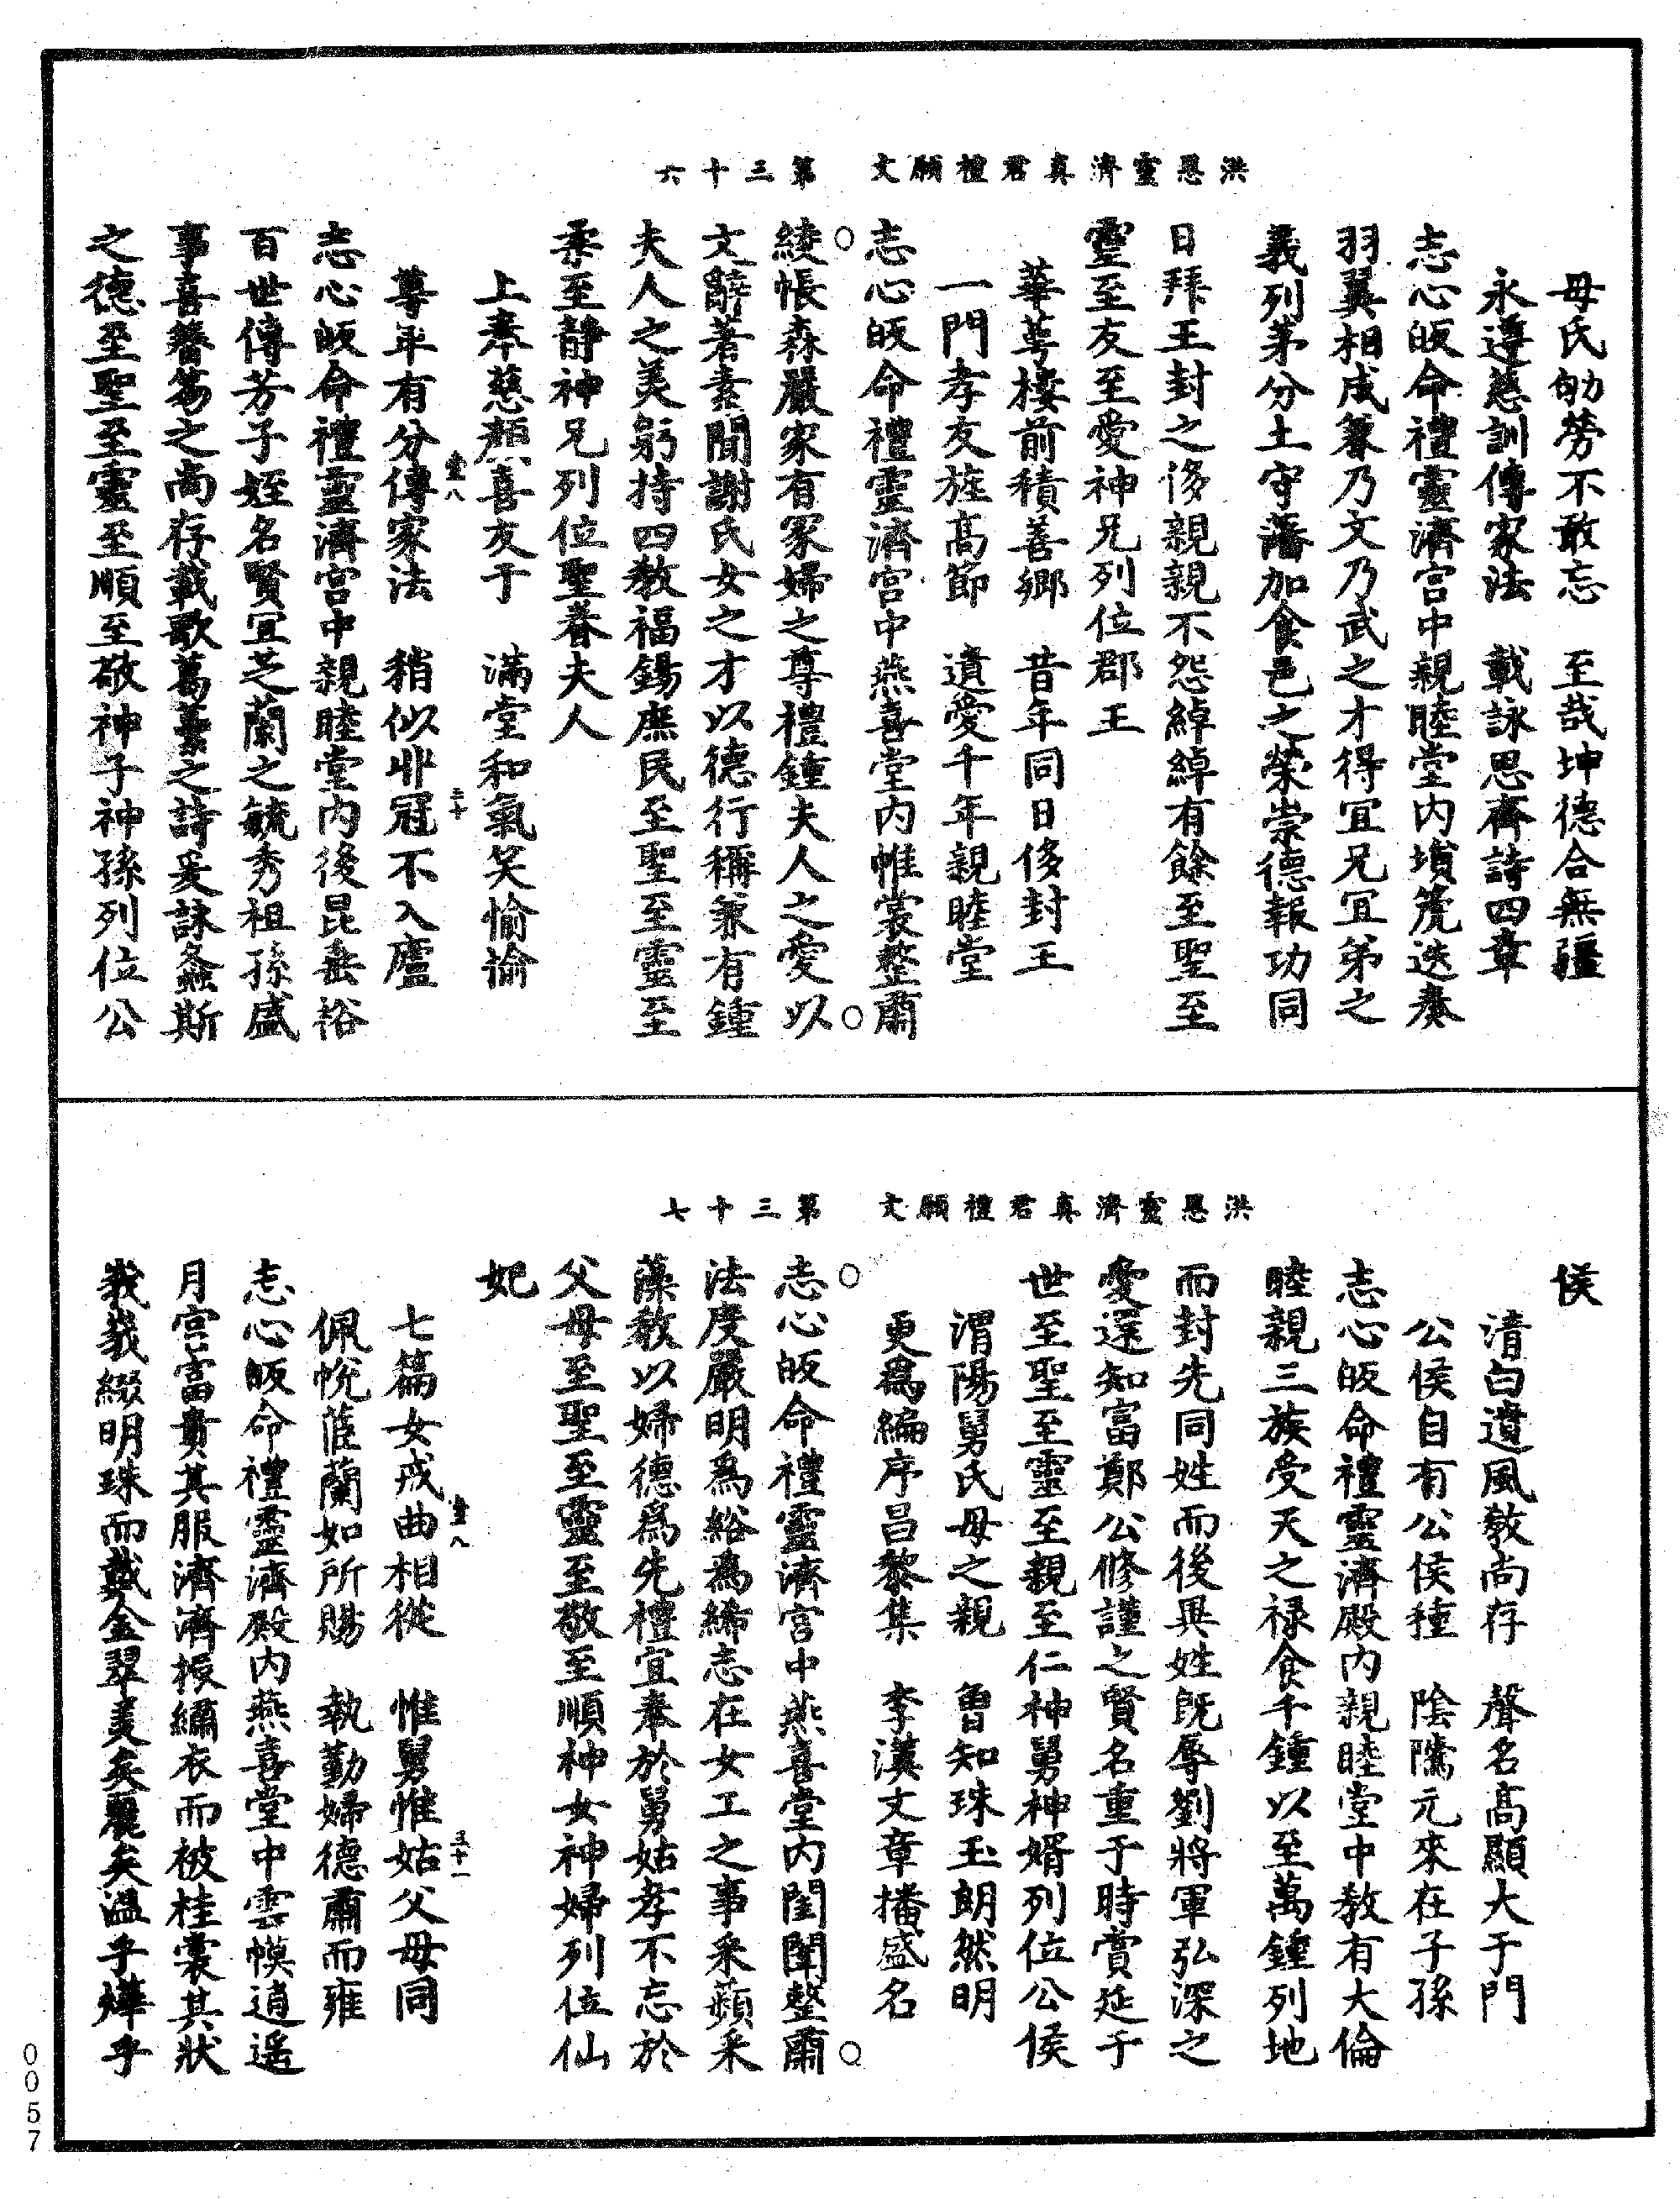 洪恩靈濟真君禮願文　第三十六
母氏劬勞不敢忘　至哉坤德合無疆
永遵慈訓傳家法　載詠思齊詩四章
志心皈命禮靈濟宮中親睦堂內塤篪迭奏
羽翼相成兼乃文乃武之才得宜兄宜弟之
義列茅分土守藩加食邑之榮崇德報功同
日拜王封之侈親親不怨綽綽有餘至聖至
靈至友至愛神兄列位郡王
華萼樓前積善鄉　昔年同日侈封王
一門孝友旌高節　遺愛千年親睦堂
志心皈命禮靈濟宮中燕喜堂內帷裳整肅
綾帳森嚴家有冢婦之尊禮鍾夫人之愛以
文辭著素聞謝氏女之才以德行稱兼有鍾
夫人之美躬持四教福錫庶民至聖至靈至
柔至靜神兄列位聖眷夫人
上奉慈顏喜友于　滿堂和氣笑愉愉
尊卑有分傳家法　稍似非冠不入廬
壹八
三十
志心皈命禮靈濟宮中親睦堂內後昆垂裕
百世傳芳子姪名賢宜芝蘭之毓秀祖孫盛
事喜簪笏之尚存載歌葛藟之詩爰詠螽斯
之德至聖至靈至順至敬神子神孫列位公
洪恩靈濟真君禮願文　第三十七
侯
清白遺風教尚存　聲名高顯大于門
公侯自有公侯種　陰隲元來在子孫
志心皈命禮靈濟殿內親睦堂中教有大倫
睦親三族受天之祿食千鍾以至萬鍾列地
而封先同姓而後異姓既辱劉將軍弘深之
愛還知富鄭公修謹之賢名重于時賞延于
世至聖至靈至親至仁神舅神婿列位公侯
渭陽舅氏母之親　魯知珠玉朗然明
更為編序昌黎集　李漢文章播盛名
志心皈命禮靈濟宮中燕喜堂內閨閫整肅
法度嚴明為綌為絺志在女工之事采蘋采
藻教以婦德為先禮宜奉於舅姑孝不忘於
父母至聖至靈至敬至順神女神婦列位仙
妃
七篇女戒曲相從　惟舅惟姑父母同
壹八
三十一
佩帨茝蘭如所賜　執勤婦德肅而雍
志心皈命禮靈濟殿內燕喜堂中雲幙逍遙
月宮富貴其服濟濟振繡衣而被桂裳其狀
峩峩綴明珠而戴金翠美矣麗矣溫乎燁乎
0057